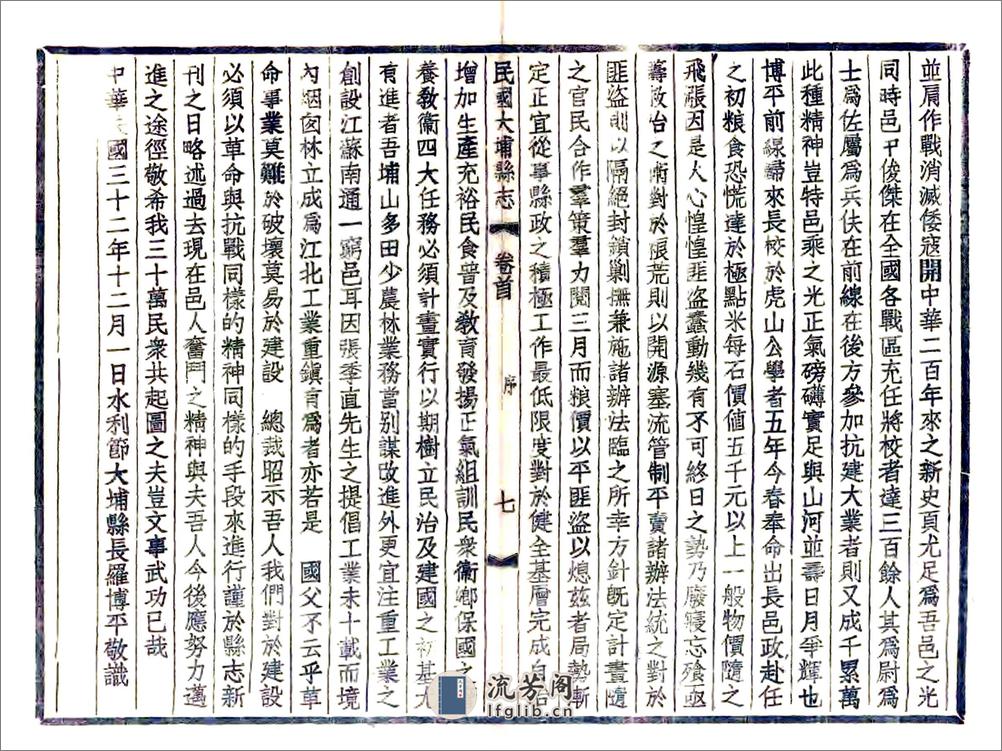 並肩作戰消滅倭寇開中華二百年來之新史頁尤足爲吾邑之光
同時邑中俊傑在全國各戰區充任將校者達三百餘人其爲尉爲
士爲佐屬爲兵伕在前線在後方參加抗建大業者則又成千累萬
此種精神豈特邑乘之光正氣磅礴實足與山河並壽日月爭輝也
博平前線歸來長校於虎山公學者五年今春奉命出長邑政赴任
之初粮食恐慌達於極點米每石價値五千元以上一般物價隨之
飛漲因是人心惶惶匪盜蠢動幾有不可終日之勢乃廢寢忘飧亟
籌救治之對於張荒則以開源塞流管制平賣諸辦法統之對於
匪盜則以隔絕封鎖剿撫兼施諸辦法臨之所幸方針旣定計畫隨
之官民合作羣策羣力閱三月而粮價以平匪盜以熄茲者局勢漸
定正宜從事縣政之積極工作最低限度對於健全基層完成自治
民國大埔縣志 卷首 序 七
增加生產充裕民食普及敎育發揚正氣組訓民衆衞鄉保國之
養敎衞四大任務必須計畫實行以期樹立民治及建國之初基尤
有進者吾埔山多田少農林業務當別謀改進外更宜注重工業之
創設江蘇南通一窮邑耳因張季直先生之提倡工業未十載而境
內烟囪林立成爲江北工業重鎭有爲者亦若是 國父不云乎革
命事業莫難於破壞莫易於建設 總裁昭示吾人我們對於建設
必須以革命與抗戰同樣的精神同樣的手段來進行謹於縣志新
刊之日略述過去現在邑人奮鬥之精神與夫吾人今後應努力邁
進之途徑敬希我三十萬民衆共起圖之夫豈文事武功已哉
中華民國三十二年十二月一日水利節大埔縣長羅博平敬識
流芳閣
lfglib.cn